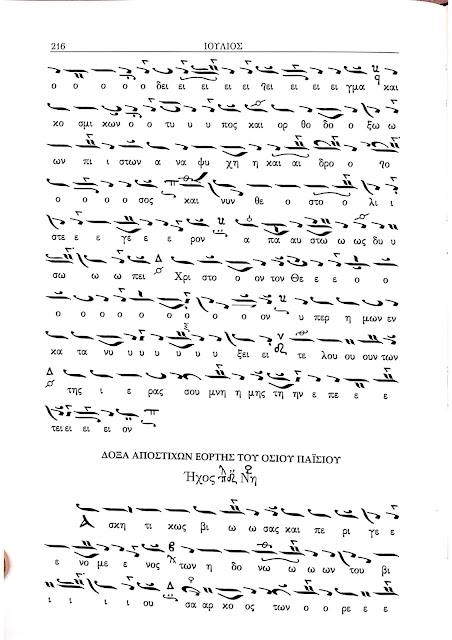 216 ΙΟΥΛΙΟΣ
ο ο ο ο ο δει ει ει ει ει ει ει ει ει γμα και
κο σμι κων ο ο τυ υ υ πος και ορ θο δο ο ξω ω
ων πι ι στων α να ψυ χη η και αι δρο ο
ο ο ο ο σος και νυν θε ο στο ο λι ι
στε ε ε γε ε ε ρον α πα αυ στω ω ως δυ υ
σω ω ω πει Χρι στο ο ον τον Θε ε ε ο ο
ο ο ο ο ο ο ο ο ον υ περ η μων εν
κα τα νυ υ υ υ υ υ ξει ει τε λου ου ουν των
της ι ε ρας σου μνη η μης τη ην ε πε ε ε
τει ει ει ει ει ον
ΔΟΞΑ ΑΠΟΣΤΙΧΩΝ ΕΟΡΤΗΣ ΤΟΥ ΟΣΙΟΥ ΠΑΪΣΙΟΥ
Ἦχος Νη
Α σκη τι κως βι ω ω σας και πε ρι γε ε
ε νο με ε νος των η δο νω ω ω ων του βι
ι ι ι ι ου σα αρ κο ος των ο ρε ε ε